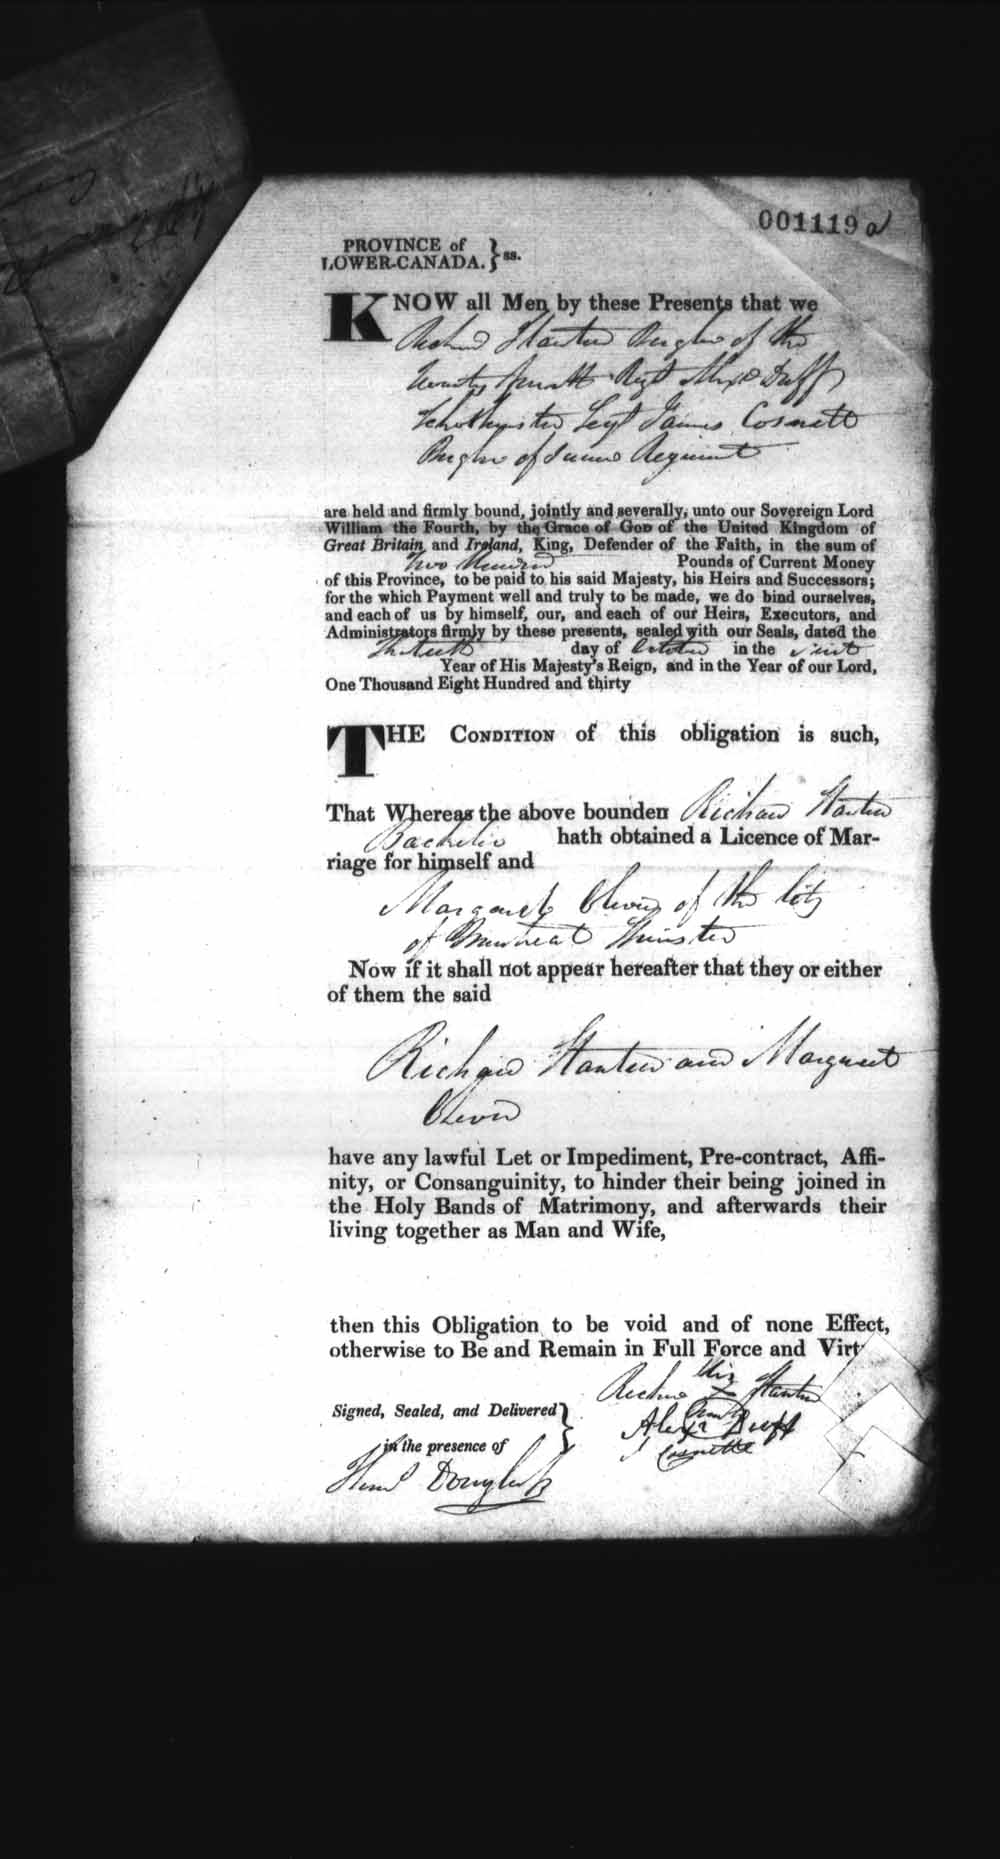 001119 a
PROVINCE of
LOWER-CANADA. } ss.
KNOW all Men by these Presents that we
Richard Stanton Bugler of the
Twenty Regt Alexr Duff
Schoolmaster Sergt James Cosnett
Bugler of Same Regiment
are held and firmly bound, jointly and severally, unto our Sovereign Lord
William the Fourth, by the Grace of God of the United Kingdom of
Great Britain and Ireland, King, Defender of the Faith, in the sum of
Two Hundred Pounds of Current Money
of this Province, to be paid to his said Majesty, his Heirs and Successors;
for the which Payment well and truly to be made, we do bind ourselves,
and each of us by himself, our, and each of our Heirs, Executors, and
Administrators firmly by these presents, sealed with our Seals, dated the
day of October in the first
Year of His Majesty's Reign, and in the Year of our Lord,
One Thousand Eight Hundred and thirty
THE CONDITION of this obligation is such,
That Whereas the above bounden Richard Stanton
Bachelor hath obtained a Licence of Mar-
riage for himself and
Margaret of the City
of Montreal Spinster
Now if it shall not appear hereafter that they or either
of them the said
Richard Stanton and Margaret
have any lawful Let or Impediment, Pre-contract, Affi-
nity, or Consanguinity, to hinder their being joined in
the Holy Bands of Matrimony, and afterwards their
living together as Man and Wife,
then this Obligation to be void and of none Effect,
otherwise to Be and Remain in Full Force and Virt
his
Richard X Stanton
mark
Signed, Sealed, and Delivered }
Alexr Duff
in the presence of
J Cosnette